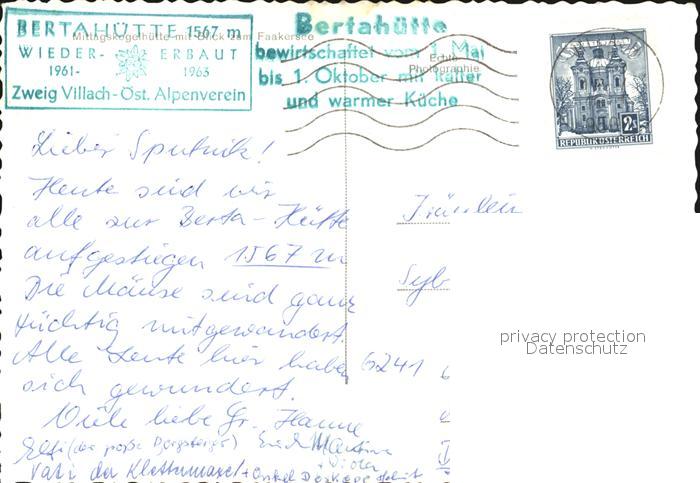 BERTAHÜTTE 1567 m
Mittagskogelhütte mit Blick zum Faakersee
WIEDER- ERBAUT
1961- 1963
Zweig Villach-Öst. Alpenverein
Bertahütte
bewirtschaftet vom 1. Mai
bis 1. Oktober mit kalter
und warmer Küche
Echte
Photographie
2S
REPUBLIK ÖSTERREICH
Lieber Sputnik!
Heute sind wir
alle zur Berta-Hütte
aufgestiegen 1567 m
Die Mäuse sind ganz
tüchtig mitgewandert.
Alle Leute hier haben
sich gewundert.
Viele liebe Gr. Hanne
Vati der Klettermaxe
Fräulein
Syb
6241
privacy protection
Datenschutz